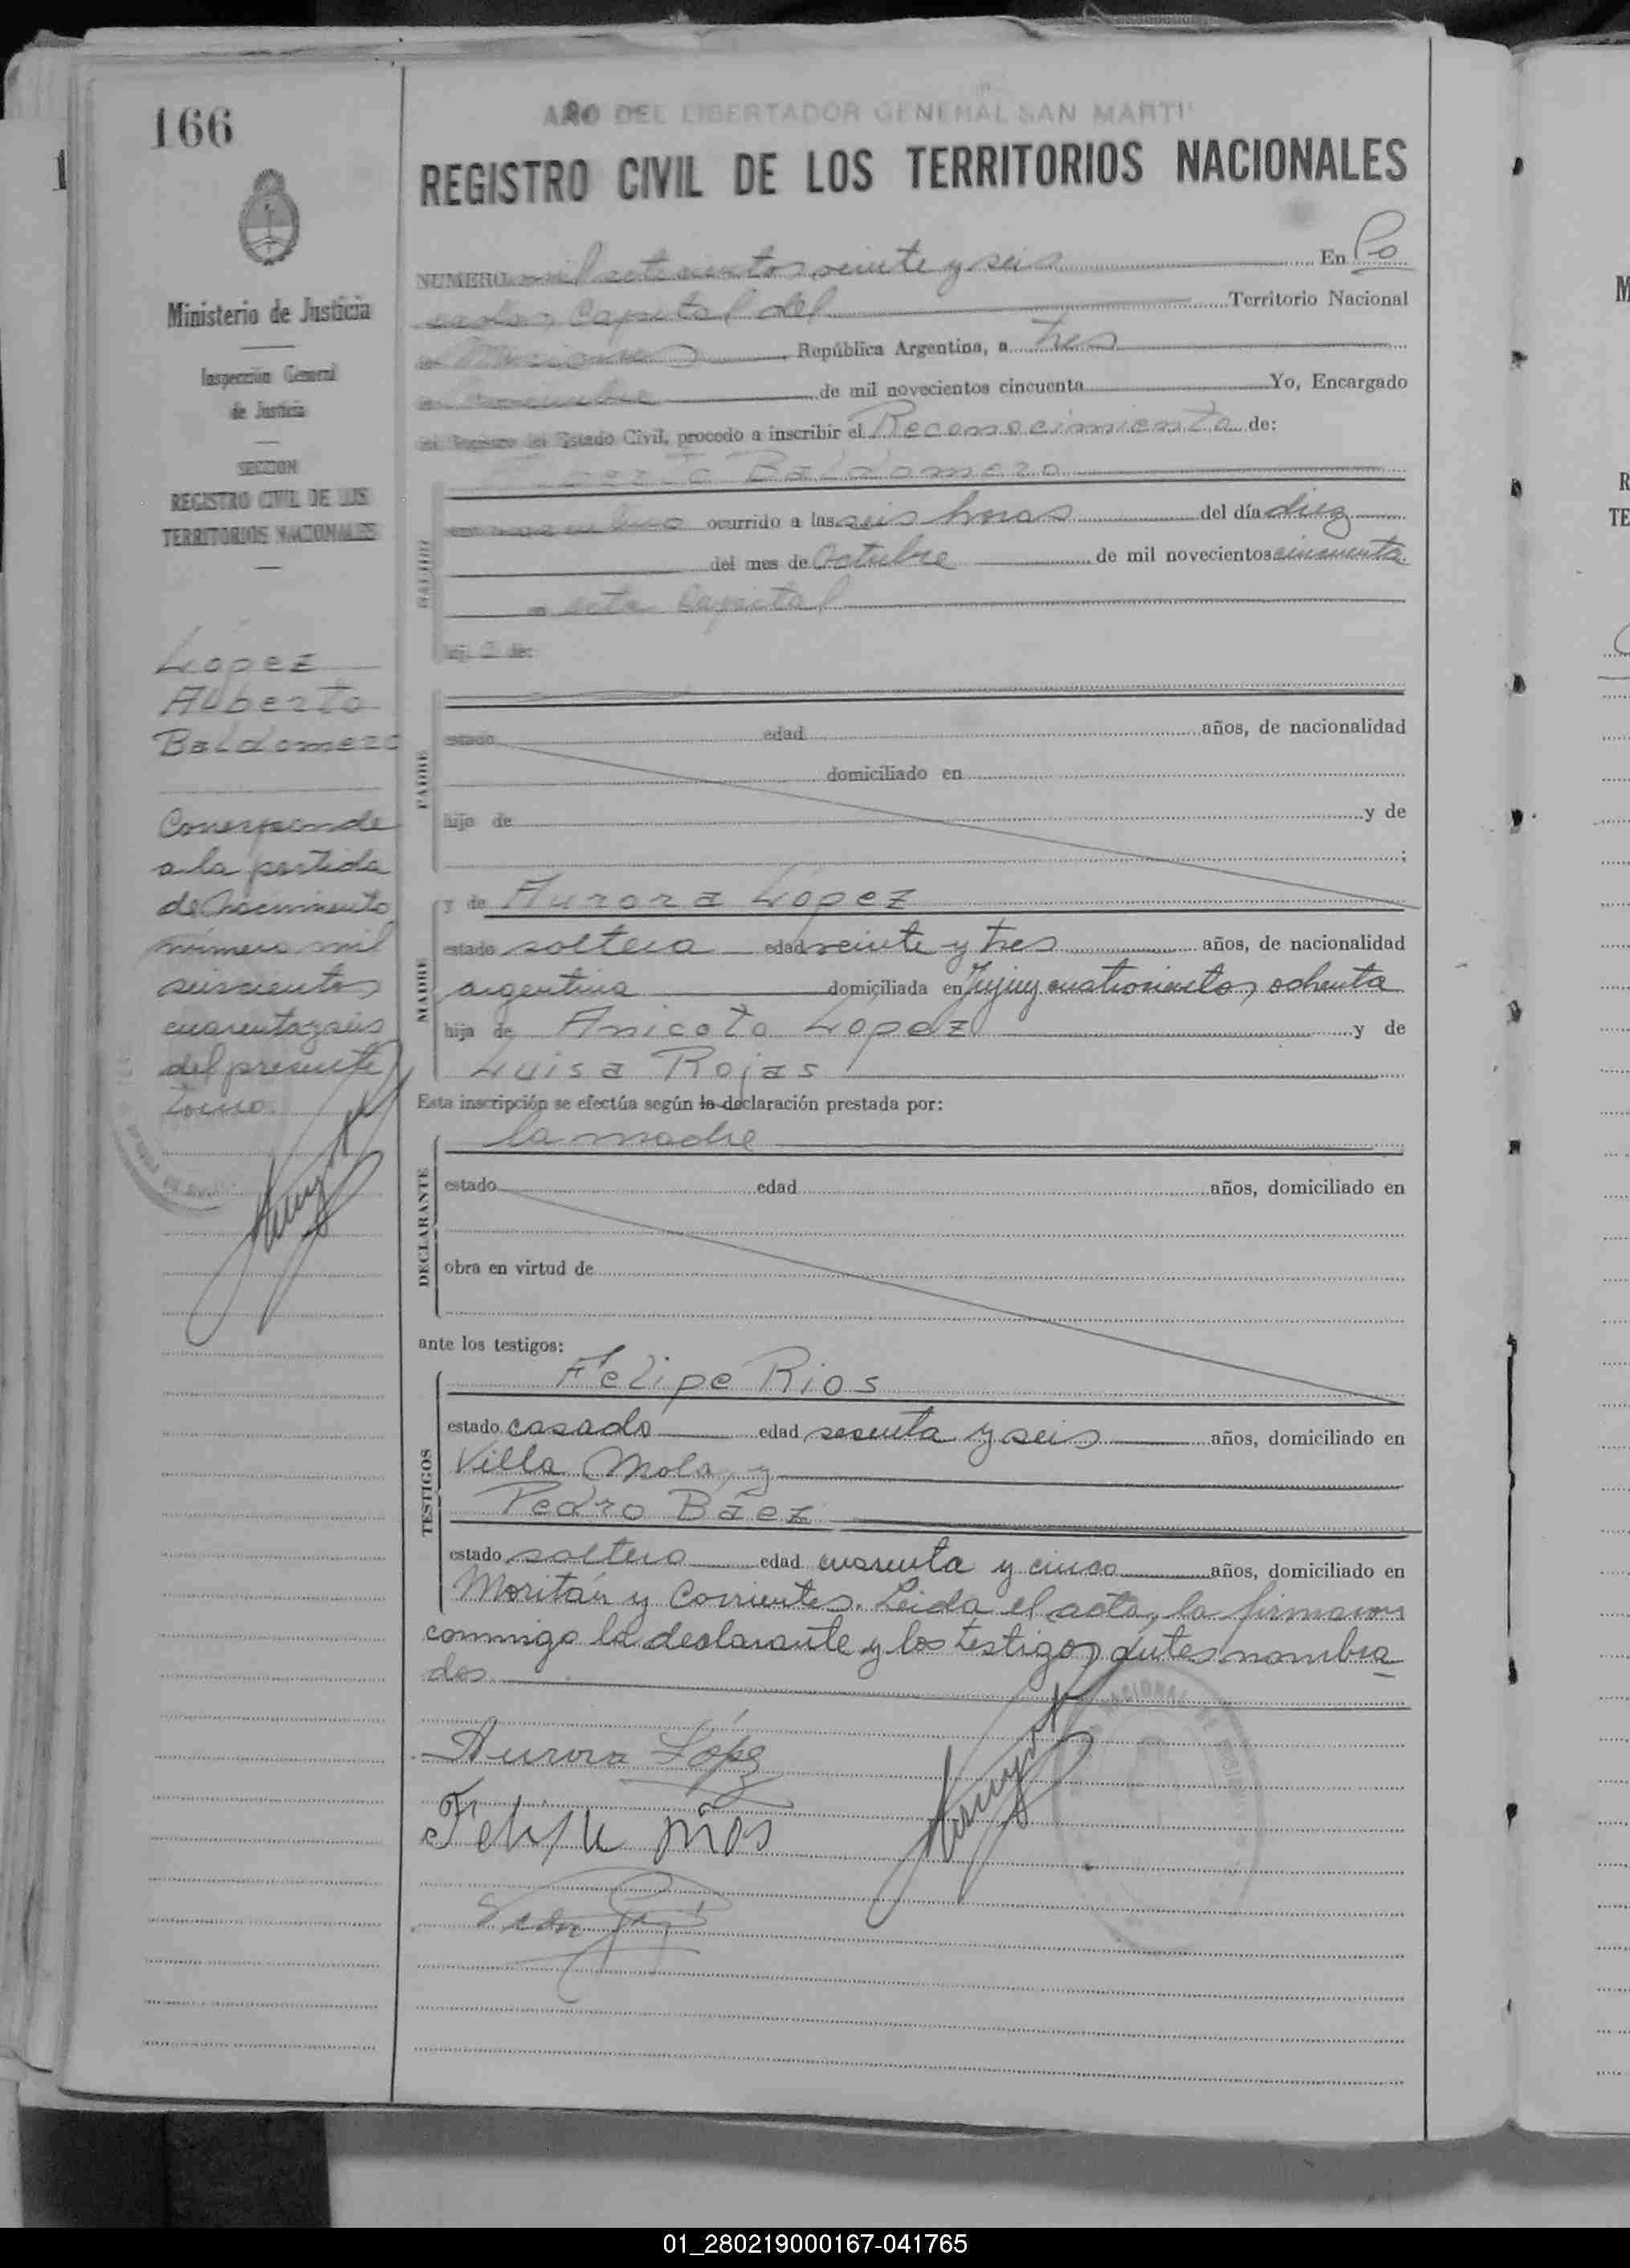 166
AÑO DEL LIBERTADOR GENERAL SAN MARTI
REGISTRO CIVIL DE LOS TERRITORIOS NACIONALES
Ministerio de Justicia
Inspección General
de Justicia
SECCION
REGISTRO CIVIL DE LOS
TERRITORIOS NACIONALES
López
Alberto
Baldomero
Corresponde
a la partida
de Nacimiento
número mil
seiscientos
cuarenta y seis
del presente
tomo.
NUMERO mil setecientos veinte y seis En Po
sadas, Capital del Territorio Nacional
de Misiones, República Argentina, a tres
de de mil novecientos cincuenta Yo, Encargado
del Registro del Estado Civil, procedo a inscribir el Reconocimiento de:
Alberto Baldomero
masculino ocurrido a las seis horas del día diez
del mes de Octubre de mil novecientos cincuenta
en esta Capital
hijo de:
PADRE
estado edad años, de nacionalidad
domiciliado en
hijo de y de
;
MADRE
y de Aurora López
estado soltera edad veinte y tres años, de nacionalidad
argentina domiciliada en Jujuy cuatrocientos ochenta
hija de Aniceto López y de
Luisa Rojas
Esta inscripción se efectúa según la declaración prestada por:
DECLARANTE
la madre
estado edad años, domiciliado en
obra en virtud de
ante los testigos:
TESTIGOS
Felipe Rios
estado casado edad sesenta y seis años, domiciliado en
Villa Mola, y
Pedro Báez
estado soltero edad cuarenta y cinco años, domiciliado en
Moritán y Corrientes. Leida el acta, la firmaron
conmigo la declarante y los testigos antes nombra
dos.
Aurora López
Felipe rios
01_280219000167-041765